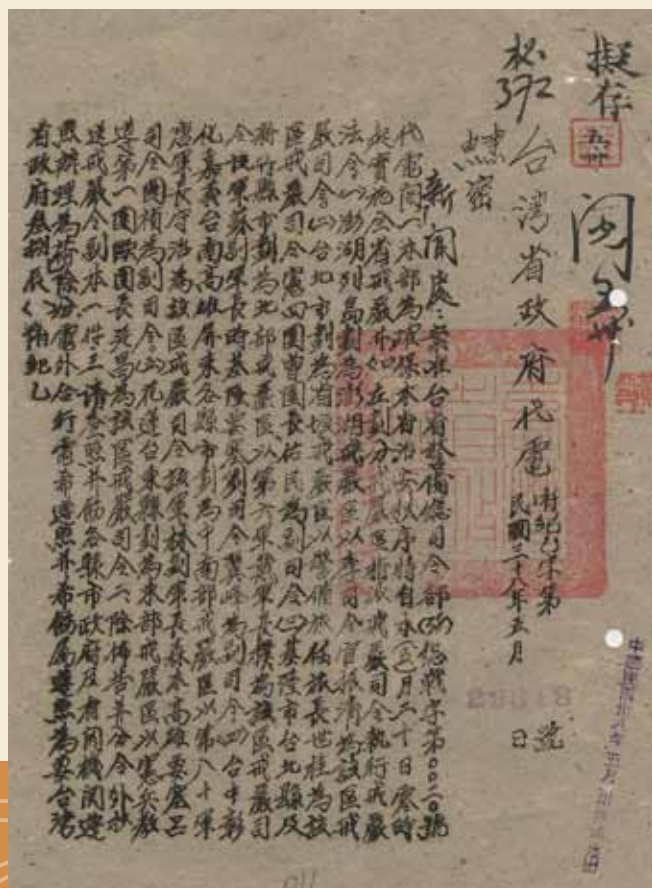 擬存
台灣省政府代電
民國三十八年五月 日
字第 號
新聞處:案准台灣省警備總司令部(38)總戰字第〇〇二〇號
代電開:(一)本部為確保本省治安秩序特自本(五)月二十日零時
起實施全省戒嚴并如左劃分戒嚴區指派戒嚴司令執行戒嚴
法令(1)澎湖列島劃為澎湖戒嚴區以李司令官振清為該區戒
嚴司令(2)台北市劃為省垣戒嚴區以警備旅任旅長世桂為該
區戒嚴司令憲四團曹團長佑民為副司令(3)基隆市台北縣及
新竹縣市劃為北部戒嚴區以第六軍戴軍長樸為該區戒嚴司
令該軍蘇副軍長時基隆要塞劉司令翼峰為副司令(4)台中彰
化嘉義台南高雄屏東各縣市劃為中南部戒嚴區以第八十軍
唐軍長守治為該區戒嚴司令該軍林副軍長森木高雄要塞呂
司令國楨為副司令(5)花蓮台東縣劃為東部戒嚴區以憲兵教
導第一團歐團長廷昌為該區戒嚴司令二、除佈告并分令外抄
送戒嚴令副本一份三、請查照并飭各縣市政府及有關機關遵
照辦理為荷除分電外合行電希遵照并希飭屬遵照為要台灣
省政府叁捌辰府紀乙